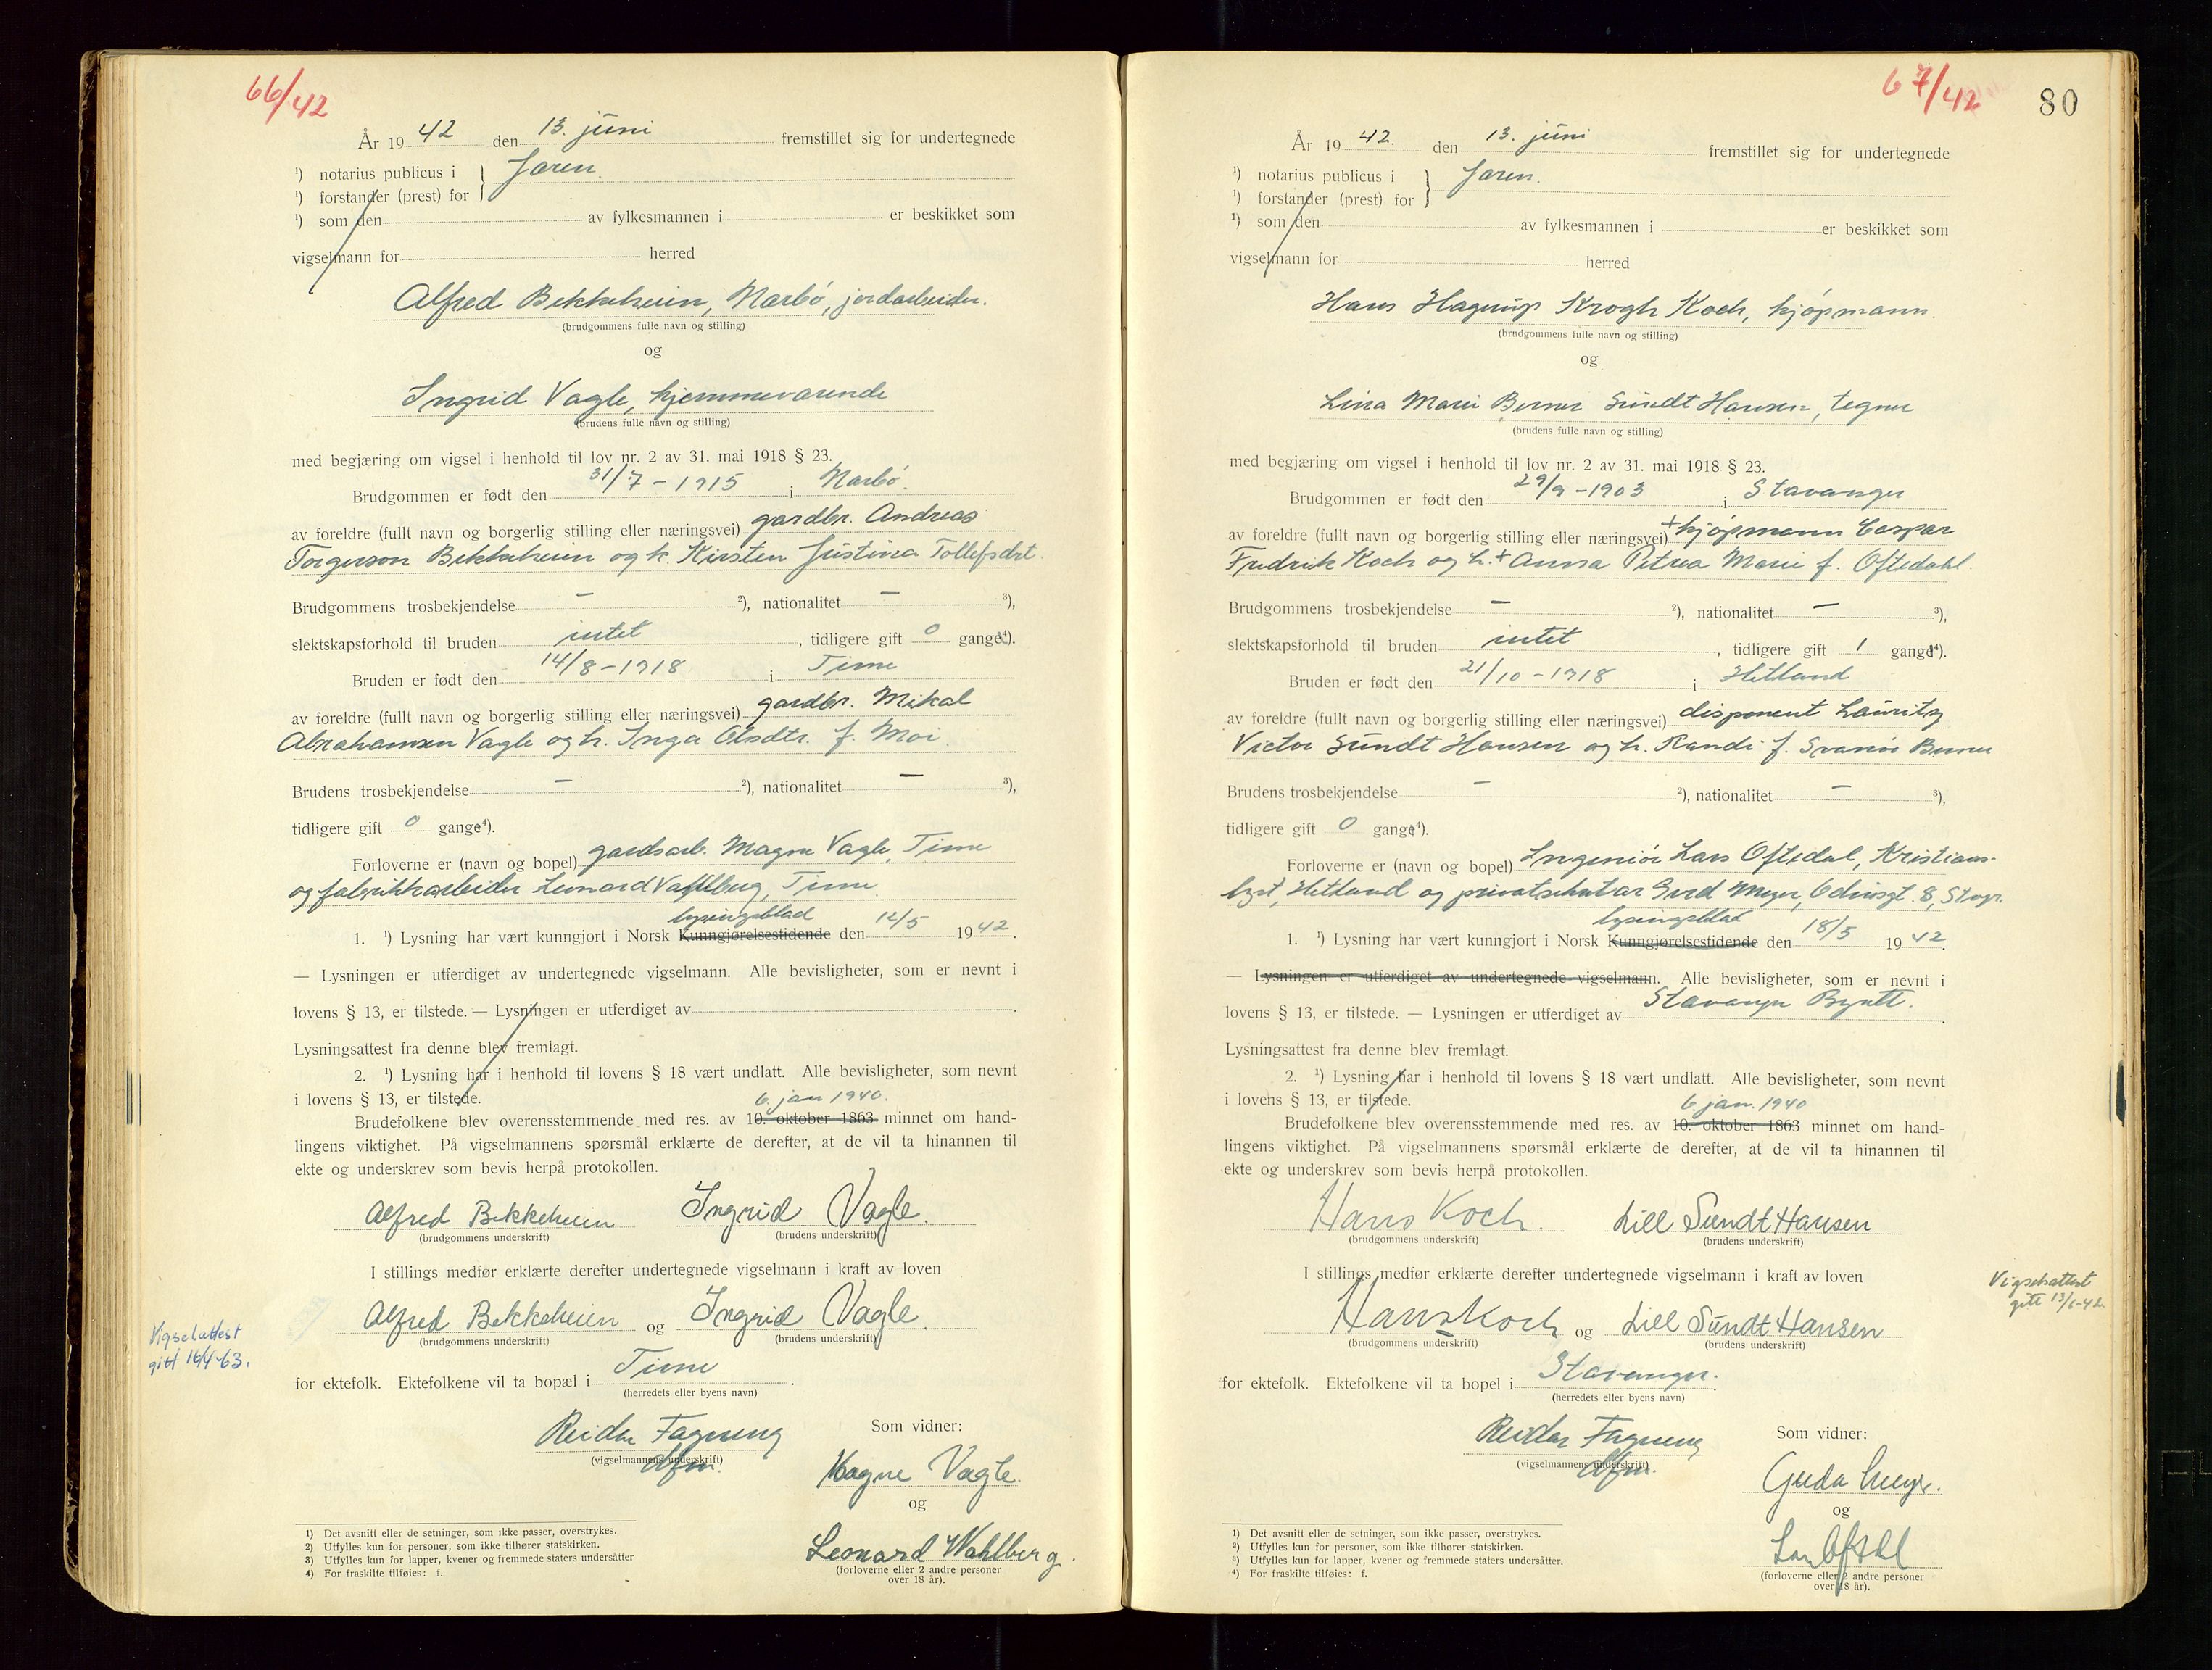 66/42
År 19 42 den 13. juni fremstillet sig for undertegnede
¹) notarius publicus i } Jæren.
¹) forstander (prest) for
¹) som den av fylkesmannen i er beskikket som
vigselmann for herred
Alfred Bekkeheien, Nærbø, jordarbeider.
(brudgommens fulle navn og stilling)
og
Ingrid Vagle, hjemmeværende
(brudens fulle navn og stilling)
med begjæring om vigsel i henhold til lov nr. 2 av 31. mai 1918 § 23.
Brudgommen er født den 31/7 - 1915 i Nærbø.
av foreldre (fullt navn og borgerlig stilling eller næringsvei) gardbr. Andreas
Torgerson Bekkeheien og h. Kirsten Justina Tollefsdtr.
Brudgommens trosbekjendelse — ²), nationalitet — ³),
slektskapsforhold til bruden intet, tidligere gift 0 gange⁴).
Bruden er født den 14/8 - 1918 i Time
av foreldre (fullt navn og borgerlig stilling eller næringsvei) gardbr. Mikal
Abrahamsen Vagle og h. Inga Olsdtr. f. Moi.
Brudens trosbekjendelse — ²), nationalitet — ³),
tidligere gift 0 gange⁴).
Forloverne er (navn og bopel) gardsarb. Magne Vagle, Time
og fabrikkarbeider Leonard Vahlberg, Time.
lysingsblad
1. ¹) Lysning har vært kunngjort i Norsk Kunngjørelsestidende den 12/5 19 42.
— Lysningen er utferdiget av undertegnede vigselmann. Alle bevisligheter, som er nevnt i
lovens § 13, er tilstede. — Lysningen er utferdiget av .
Lysningsattest fra denne blev fremlagt.
2. ¹) Lysning har i henhold til lovens § 18 vært undlatt. Alle bevisligheter, som nevnt
i lovens § 13, er tilstede.
6. jan 1940.
Brudefolkene blev overensstemmende med res. av 10. oktober 1863 minnet om hand-
lingens viktighet. På vigselmannens spørsmål erklærte de derefter, at de vil ta hinannen til
ekte og underskrev som bevis herpå protokollen.
Alfred Bekkeheien Ingrid Vagle.
(brudgommens underskrift) (brudens underskrift)
I stillings medfør erklærte derefter undertegnede vigselmann i kraft av loven
Alfred Bekkeheien og Ingrid Vagle.
(brudgommens underskrift) (brudens underskrift)
Vigselattest
gitt 16/4-63.
for ektefolk. Ektefolkene vil ta bopæl i Time.
(herredets eller byens navn)
Reidar Fagneng
(vigselmannens underskrift)
dfm.
Som vidner:
Magne Vagle.
og
Leonard Wahlberg.
(forloverne eller 2 andre personer
over 18 år).
1) Det avsnitt eller de setninger, som ikke passer, overstrykes.
2) Utfylles kun for personer, som ikke tilhører statskirken.
3) Utfylles kun for lapper, kvener og fremmede staters undersåtter
4) For fraskilte tilføies: f.
67/42
80
År 19 42. den 13. juni fremstillet sig for undertegnede
¹) notarius publicus i } Jæren.
¹) forstander (prest) for
¹) som den av fylkesmannen i er beskikket som
vigselmann for herred
Hans Hagerup Krogh Koch, kjøpmann.
(brudgommens fulle navn og stilling)
og
Lina Marie Berner Sundt Hansen, tegner
(brudens fulle navn og stilling)
med begjæring om vigsel i henhold til lov nr. 2 av 31. mai 1918 § 23.
Brudgommen er født den 29/9 - 1903 i Stavanger
av foreldre (fullt navn og borgerlig stilling eller næringsvei) + kjøpmann Caspar
Fredrik Koch og h. + Anna Petrea Marie f. Oftedahl.
Brudgommens trosbekjendelse — ²), nationalitet — ³),
slektskapsforhold til bruden intet, tidligere gift 1 gange⁴).
Bruden er født den 21/10 - 1918 i Hetland
av foreldre (fullt navn og borgerlig stilling eller næringsvei) disponent Lauritz
Victor Sundt Hansen og h. Randi f. Svanøe Berner
Brudens trosbekjendelse — ²), nationalitet — ³),
tidligere gift 0 gange⁴).
Forloverne er (navn og bopel) Ingeniør Lars Oftedal, Kristians-
lyst, Hetland og privatsekretær Gerd Meyer, Odinsgt. 8, Stvgr.
lysingsblad
1. ¹) Lysning har vært kunngjort i Norsk Kunngjørelsestidende den 18/5 19 42.
— Lysningen er utferdiget av undertegnede vigselmann. Alle bevisligheter, som er nevnt i
lovens § 13, er tilstede. — Lysningen er utferdiget av Stavanger Byrett.
Lysningsattest fra denne blev fremlagt.
2. ¹) Lysning har i henhold til lovens § 18 vært undlatt. Alle bevisligheter, som nevnt
i lovens § 13, er tilstede.
6 jan. 1940
Brudefolkene blev overensstemmende med res. av 10. oktober 1863 minnet om hand-
lingens viktighet. På vigselmannens spørsmål erklærte de derefter, at de vil ta hinannen til
ekte og underskrev som bevis herpå protokollen.
Hans Koch. Lill Sundt Hansen
(brudgommens underskrift) (brudens underskrift)
I stillings medfør erklærte derefter undertegnede vigselmann i kraft av loven
Hans Koch og Lill Sundt Hansen
(brudgommens underskrift) (brudens underskrift)
Vigselsattest
gitt 13/6-42.
for ektefolk. Ektefolkene vil ta bopel i Stavanger.
(herredets eller byens navn)
Reidar Fagneng
(vigselmannens underskrift)
dfm.
Som vidner:
Gerda Meyer.
og
Lars Oftedal
(forloverne eller 2 andre personer
over 18 år).
1) Det avsnitt eller de setninger, som ikke passer, overstrykes.
2) Utfylles kun for personer, som ikke tilhører statskirken.
3) Utfylles kun for lapper, kvener og fremmede staters undersåtter.
4) For fraskilte tilføies: f.